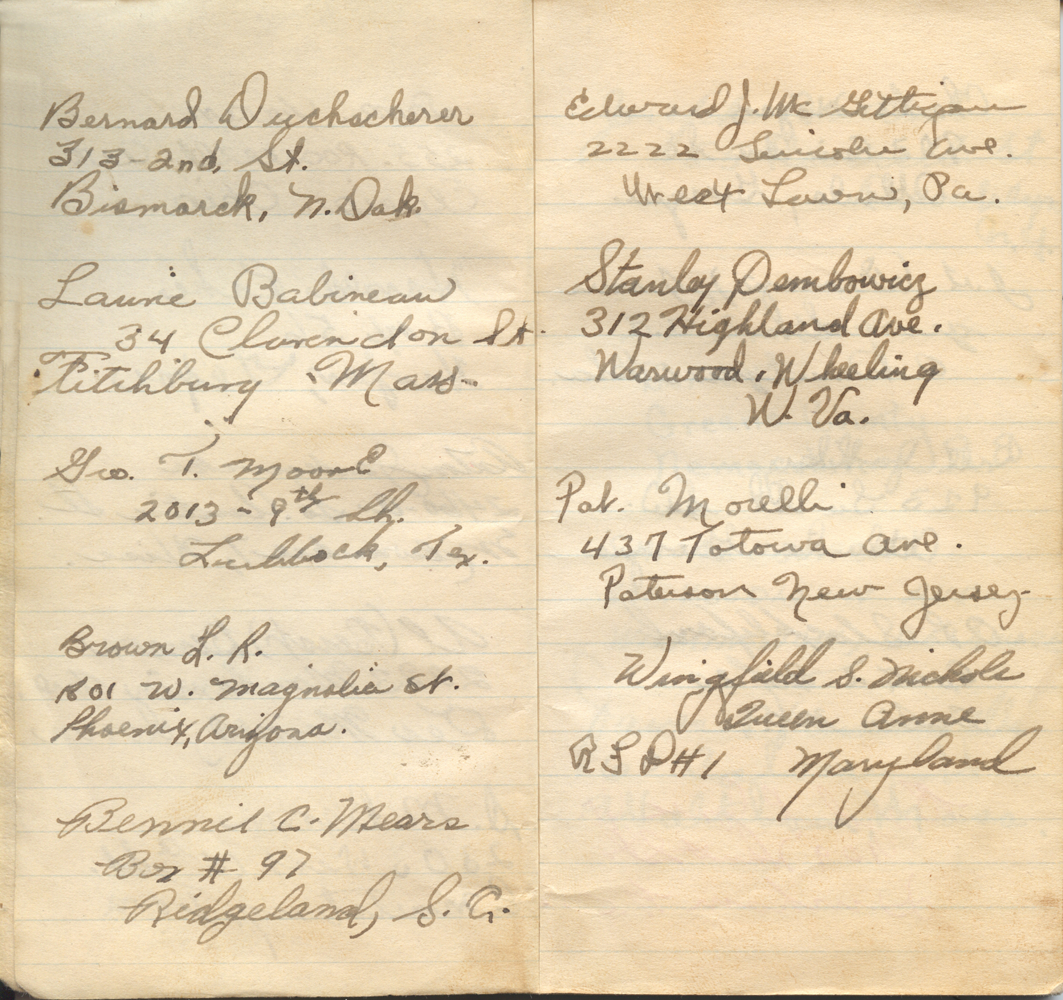 Bernard Duchscherer
313-2nd. St.
Bismarck, N. Dak.
Laurie Babineau
34 Clarendon St.
Fitchburg Mass.
Geo. T. Moore
2013 - 9th St.
Lubbock, Tex.
Brown L. R.
1801 W. Magnolia St.
Phoenix, Arizona.
Bennie C. Mears
Box # 97
Ridgeland, S. C.
Edward J. Mc Gettigan
2222 Lincoln Ave.
West Lawn, Pa.
Stanley Dembowicz
312 Highland Ave.
Warwood, Wheeling
W. Va.
Pat. Morelli
437 Totowa Ave.
Paterson New Jersey
Wingfield S. Nichols
Queen Anne
RFD#1 Maryland